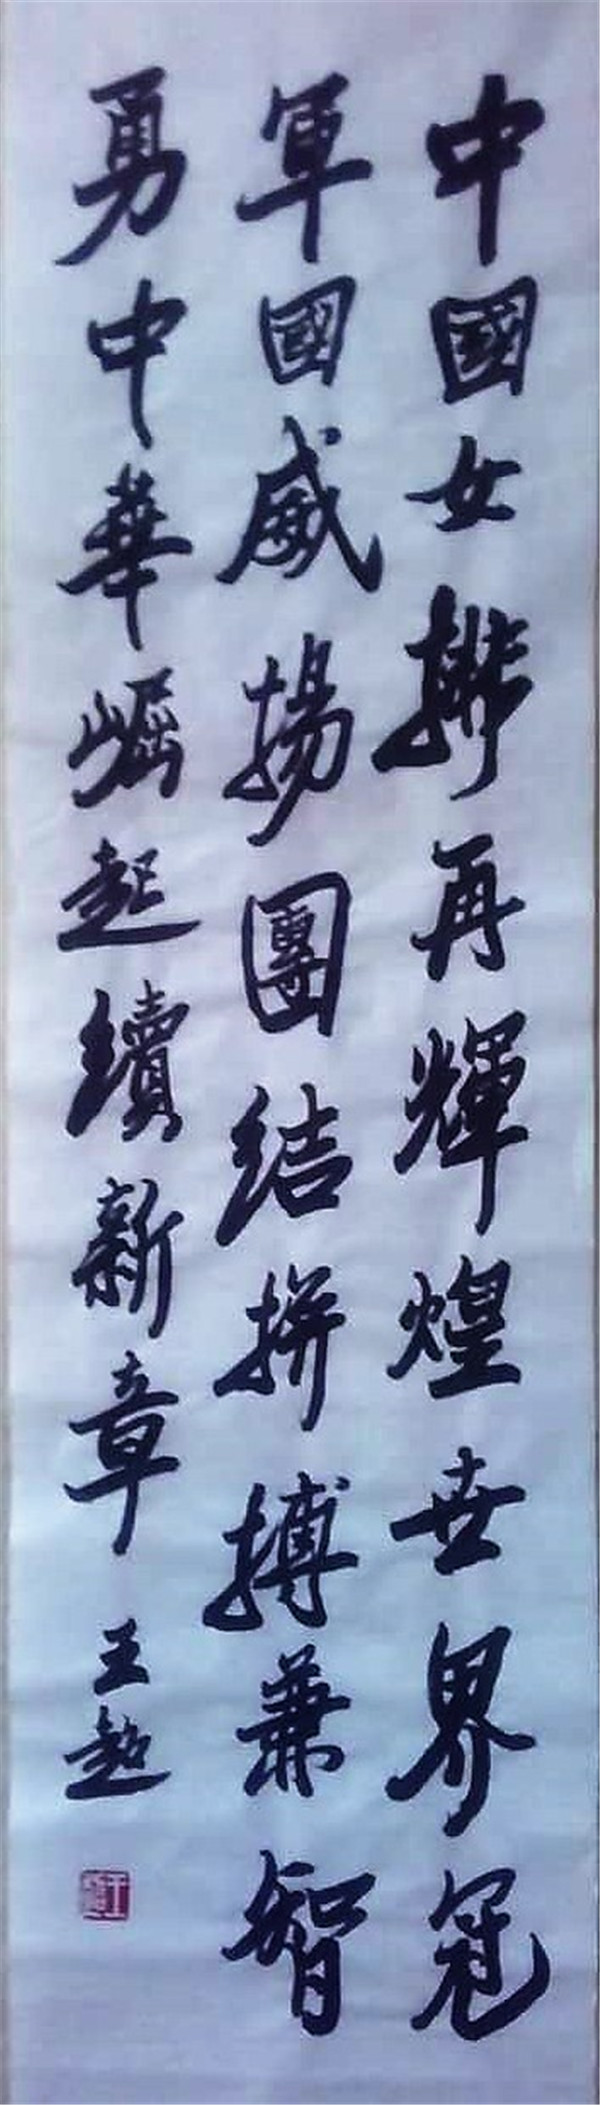 中國女排再輝煌世界冠
軍國威揚團結拼搏兼智
勇中華崛起續新章
王超